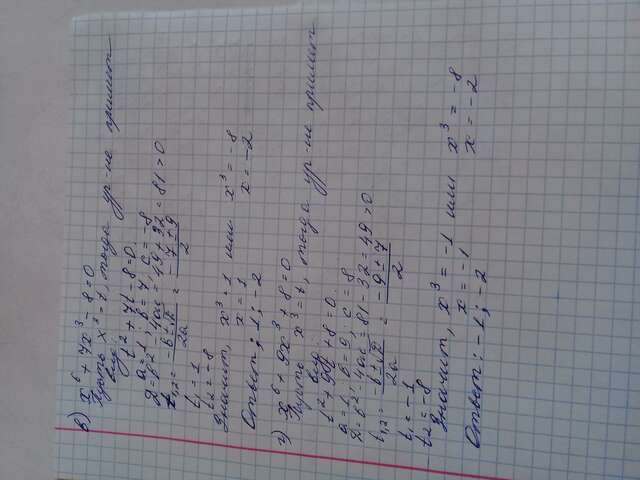 в) x⁶ + 7x³ - 8 = 0
Пусть x³ = t, тогда ур-ие примет
вид:
t² + 7t - 8 = 0
a = 1; b = 7; c = -8
D = b² - 4ac = 49 + 32 = 81 > 0
t₁,₂ = (-b ± √D)/2a = (-7 ± 9)/2
t₁ = 1
t₂ = -8
Значит, x³ = 1 или x³ = -8
x = 1 x = -2
Ответ: 1; -2
г) x⁶ + 9x³ + 8 = 0
Пусть x³ = t, тогда ур-ие примет
вид:
t² + 9t + 8 = 0
a = 1; b = 9; c = 8
D = b² - 4ac = 81 - 32 = 49 > 0
t₁,₂ = (-b ± √D)/2a = (-9 ± 7)/2
t₁ = -1
t₂ = -8
Значит, x³ = -1 или x³ = -8
x = -1 x = -2
Ответ: -1; -2